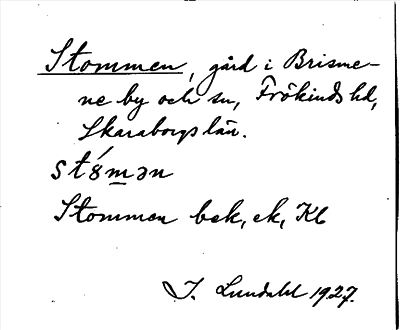 Stommen, gård i Brisme-
ne by och sn, Frökinds hd,
Skaraborgs län.
stó̀mən
Stommen bek, ek, Kb
I. Lundahl 1927.